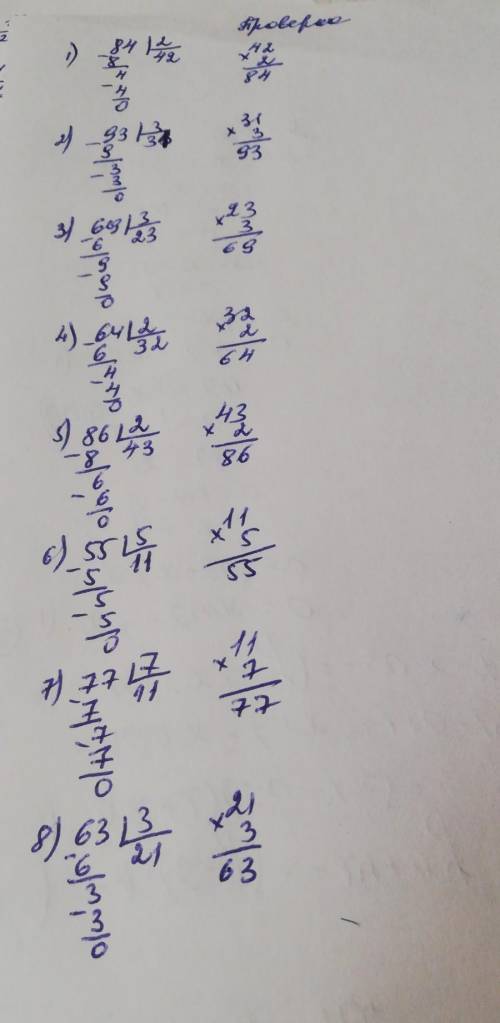 Проверка
1) 84 | 2      42
- 8   42     × 2
4            84
- 4
0
2) 93 | 3      31
- 9   31     × 3
3            93
- 3
0
3) 69 | 3      23
- 6   23     × 3
9            69
- 9
0
4) 64 | 2      32
- 6   32     × 2
4            64
- 4
0
5) 86 | 2      43
- 8   43     × 2
6            86
- 6
0
6) 55 | 5      11
- 5   11     × 5
5            55
- 5
0
7) 77 | 7      11
- 7   11     × 7
7            77
- 7
0
8) 63 | 3      21
- 6   21     × 3
3            63
- 3
0